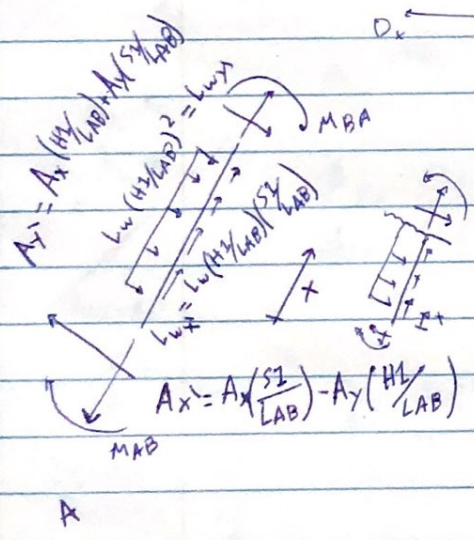 Dx
Ay' = Ax(H1/LAB)+Ay(S1/LAB)
Lw(H1/LAB)² = Lwy'
MBA
Lwx' = Lw(H1/LAB)(S1/LAB)
x
Ax' = Ax(S1/LAB) - Ay(H1/LAB)
MAB
A